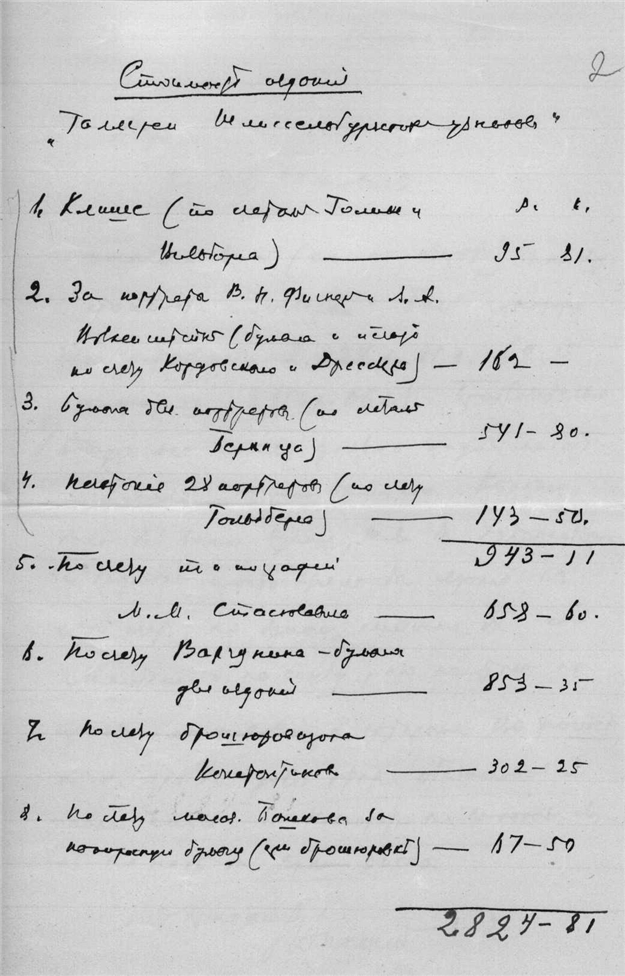 2
Стоимость изданiй
„Галлереи Шлиссельбургских узников"
1. Клише (по счетам Голике и
р. к.
Вильборга) — 95 81.
2. За портреты В. Н. Фигнер и Л. А.
Волкенштейн (бумага и
по счету Кордовского и Дресслера) — 162 —
3. Бумага для портретов (по счетам
) — 541 – 80.
4. Печатанiе 28 портретов (по счету
Гольдберга) — 143 – 50.
943 – 11
5. По счету типографiи
М. М. Стасюлевича — 658 – 60.
6. По счету Варгунина – бумага
для изданiй — 853 – 35
7. По счету брошюровщика
Константинова — 302 – 25
8. По счету Пашкова за
бумагу (для брошюровки) — 67 – 50
2824 – 81